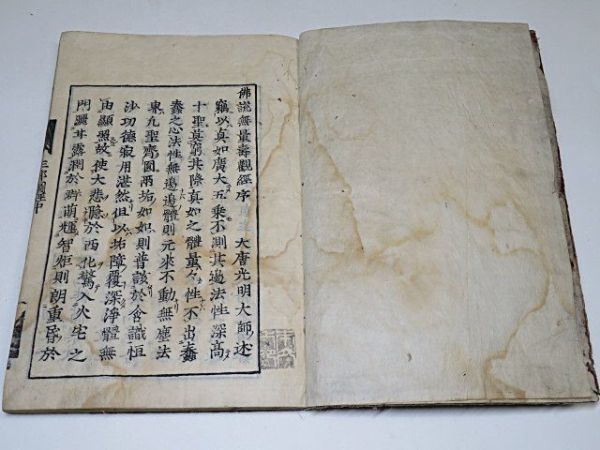 佛説無量壽觀經序 大唐光明大師述
竊以真如廣大五乘不測其邊法性深高
十聖莫窮其際真如之體量々性不出蠢
蠢之心法性無邊邊體則元来不動無塵法
界凡聖齊圓兩垢如如則普該於含識恒
沙功德寂用湛然但以垢障覆深淨體無
由顯照故使大悲隱於西化驚入火宅之
門灑甘露潤於群萌輝智炬則朗重昏於